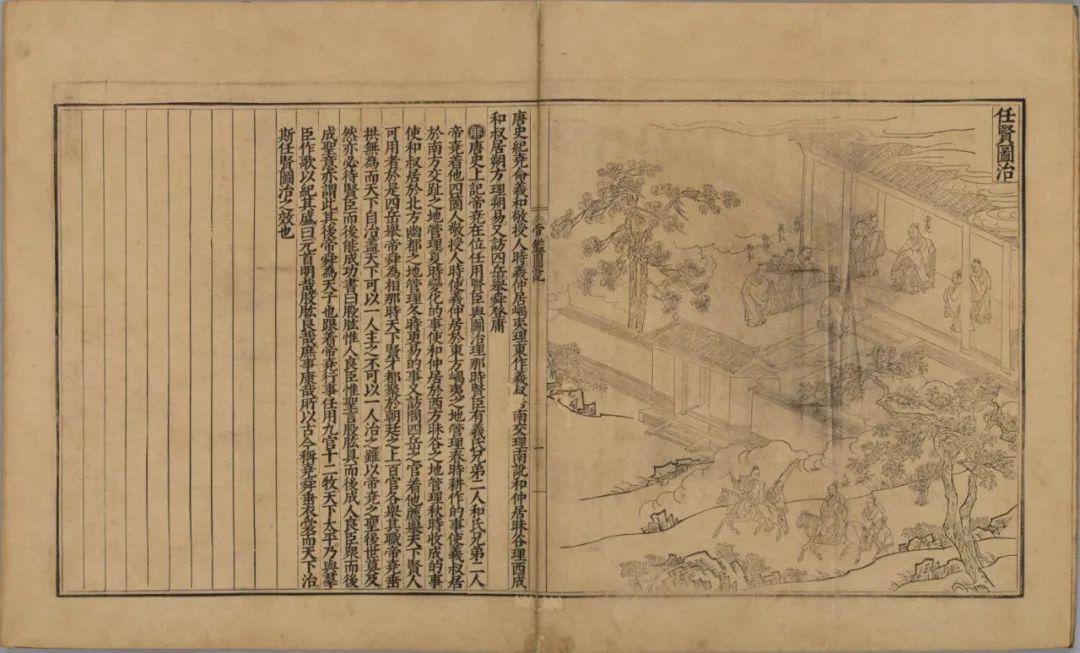 任賢圖治
唐史紀堯命羲和敬授人時羲仲居嵎夷理東作羲叔南交理南訛和仲居昧谷理西成
和叔居朔方理朔易又訪四岳舉舜登庸
解唐史上記帝堯在位任用賢臣與圖治理那時賢臣有羲氏兄弟二人和氏兄弟二人
帝堯着他四箇人敬授人時使羲仲居於東方嵎夷之地管理春時耕作的事使羲叔居
於南方交趾之地管理夏時變化的事使和仲居於西方昧谷之地管理秋時收成的事
使和叔居於北方幽都之地管理冬時更易的事又訪問四岳之官着他薦舉天下賢人
可用者於是四岳舉帝舜為相那時天下賢才都聚於朝廷之上百官各舉其職帝堯垂
拱無為而天下自治蓋天下可以一人主之不可以一人治之雖以帝堯之聖後世莫及
然亦必待賢臣而後能成功書曰股肱惟人良臣惟聖言股肱具而後成人良臣眾而後
成聖意亦謂此其後帝舜為天子也跟着帝堯行事任用九官十二牧天下太平乃與羣
臣作歌以紀其盛曰元首明哉股肱良哉庶事康哉所以古今稱堯舜垂衣裳而天下治
斯任賢圖治之效也
帝鑑圖說
一